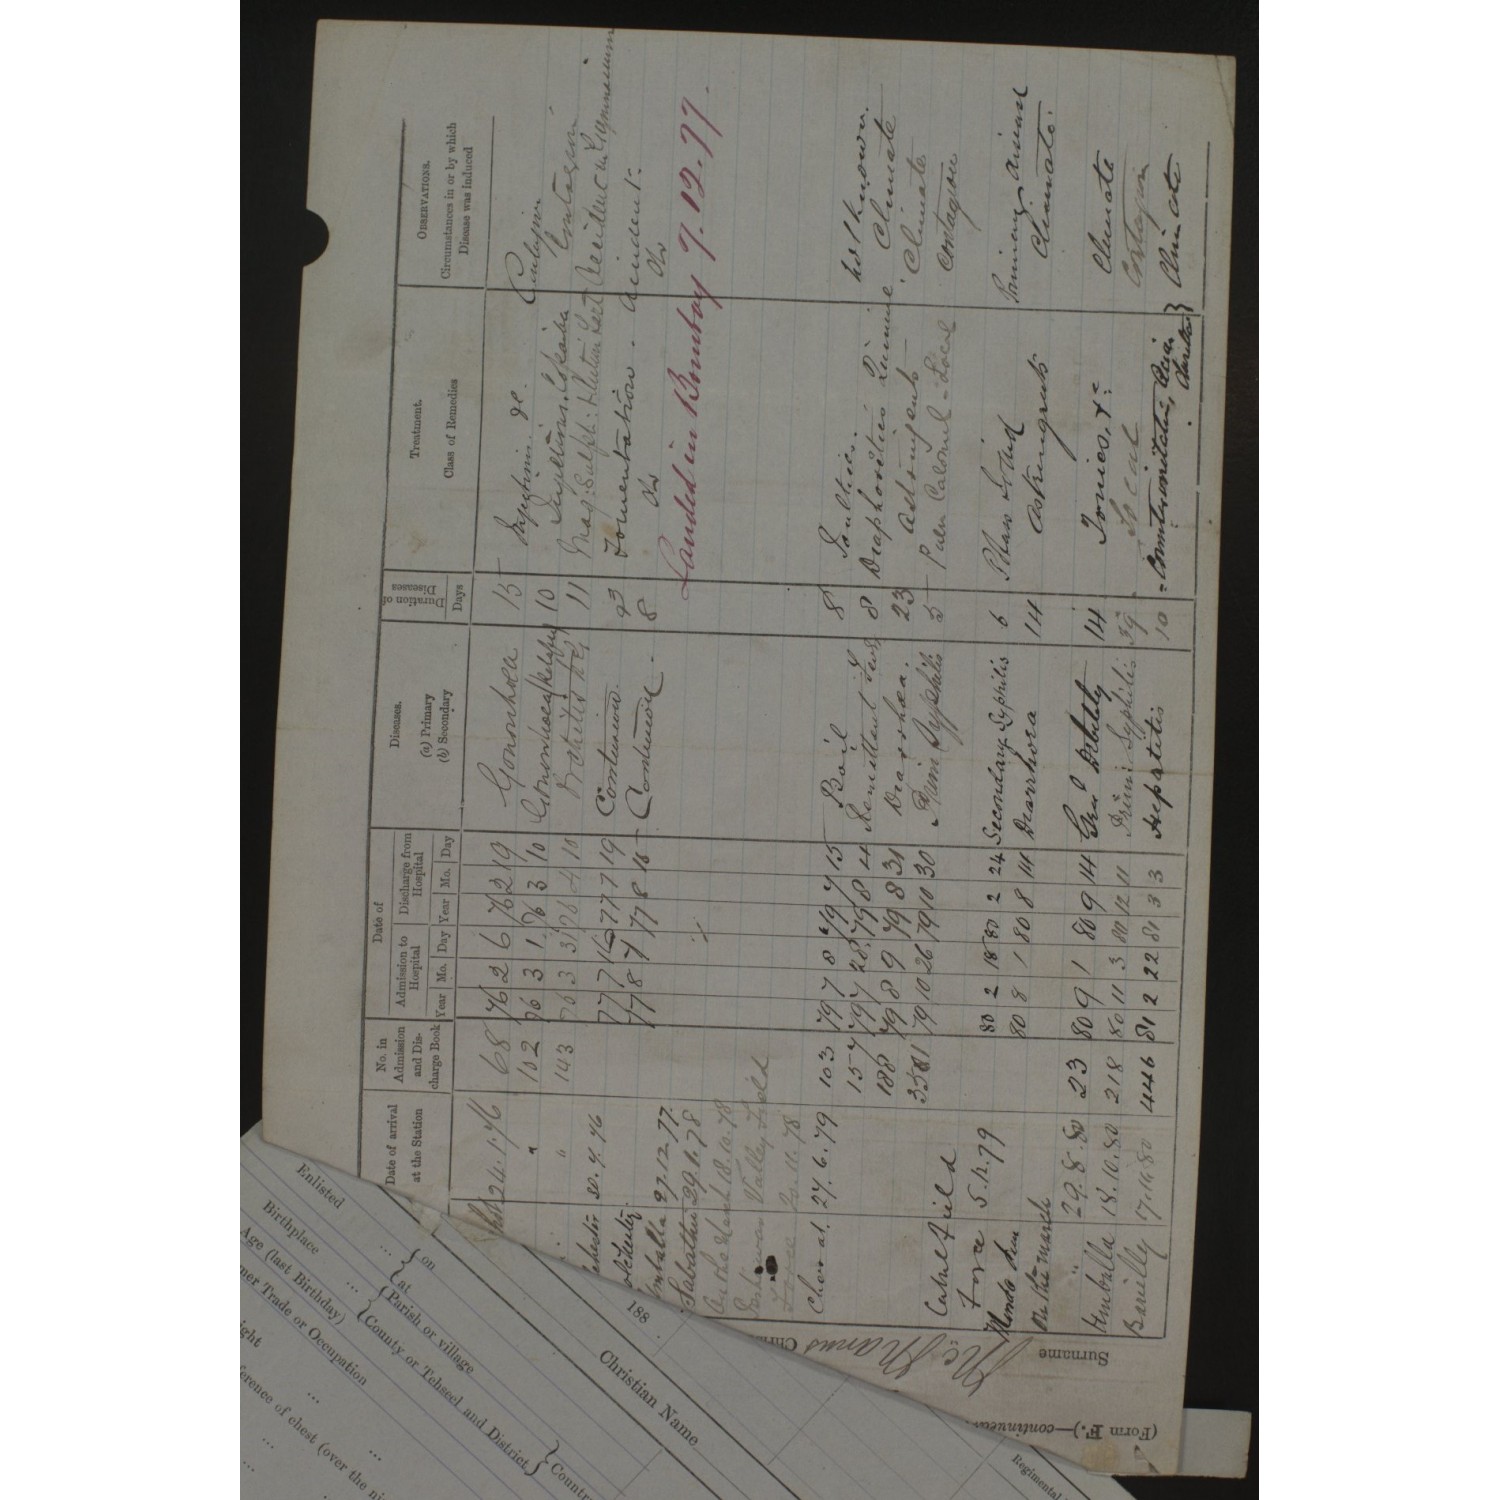 (Form F.)—continued
Surname Mc Manus
Date of arrival at the Station
No. in Admission and Discharge Book
Date of
Admission to Hospital
Year Mo. Day
Discharge from Hospital
Year Mo. Day
Diseases.
(a) Primary
(b) Secondary
Duration of Diseases
Days
Treatment.
Class of Remedies
OBSERVATIONS.
Circumstances in or by which Disease was induced
24.1.76 68 76 2 6 76 2 19 Gonorrhœa 15 Injections &c. Contagion
" 102 76 3 1 76 3 10 Gonorrhoea 10 Injections. Copaiba Contagion
" 143 76 3 31 76 4 10 11 Mag: Sulph: Accident in Gymnasium
20.7.76 77 7 16 77 7 19 Contusion. 3 Fomentation. Accident.
77 8 7 77 8 15 Contusion. 8 Do Do
Umballa 27.12.77.
Landed in Bombay 7.12.77.
Sabathu 29.1.78
On the March 18.10.78
Peshawar Valley Field
Force 20.11.78
Cherat. 27.6.79 103 79 7 8 79 7 15 Boil 8 Poultices. Not known.
157 79 7 28 79 8 4 Remittent Fever 8 Diaphoretics Quinine Climate
188 79 8 9 79 8 31 Diarrhœa. 23 Astringents Climate
79 10 26 79 10 30 Prim Syphilis 5 Pulv Calomel - Local Contagion
Cabul Field
Force 5.12.79 80 2 18 80 2 24 Secondary Syphilis 6 Potass Iodid Primary disease
80 8 1 80 8 14 Diarrhoea 14 Astringents Climate.
On the March
Umballa 29.8.80 23 80 9 1 80 9 14 Genl Debility 14 Tonics, &c Climate
" 18.10.80 218 80 11 3 80 12 11 Primy Syphilis 39 Local Contagion
Bareilly 446 81 2 22 81 3 3 Hepatitis 10 Climate
188
Christian Name
Enlisted
on
at
Birthplace
Parish or village
County or Tehseel and District
Age (last Birthday)
Trade or Occupation
Country
Regimental